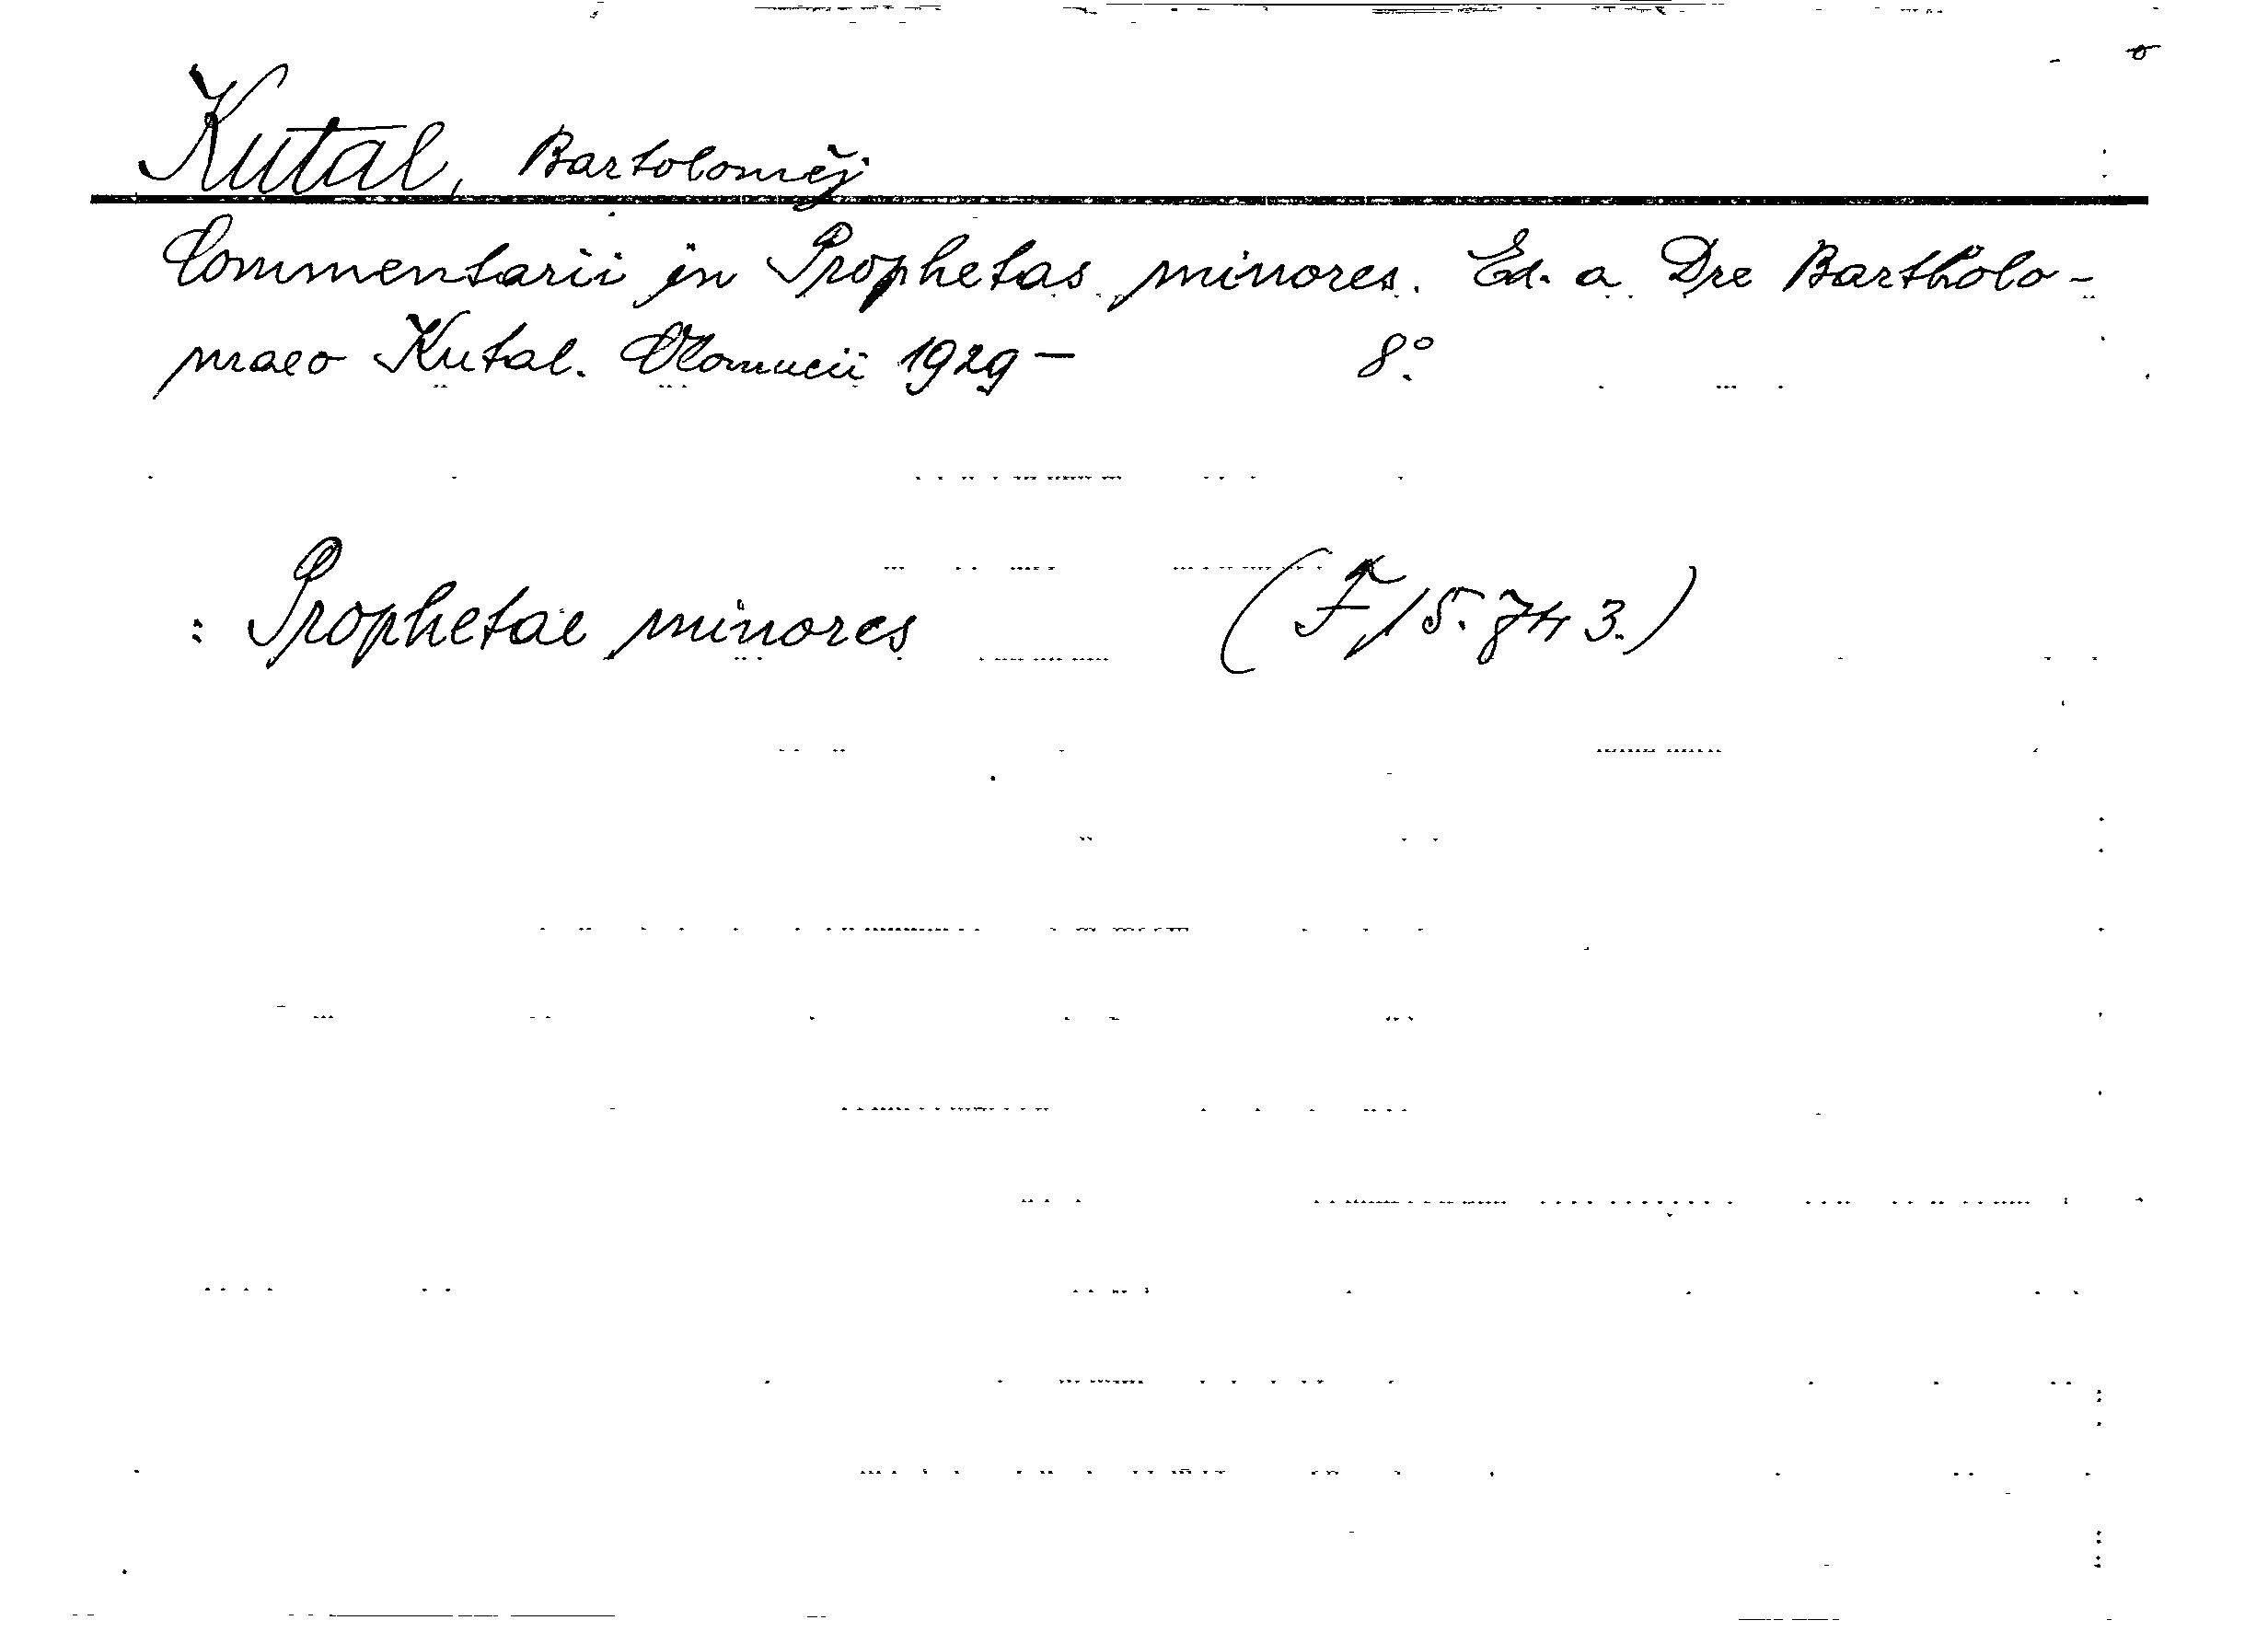 Kutal, Bartoloměj
Commentarii in Prophetas minores. Ed. a Dre Bartholo-
maeo Kutal. Olomucii 1929- 8°.
: Prophetae minores (F/5.743.)